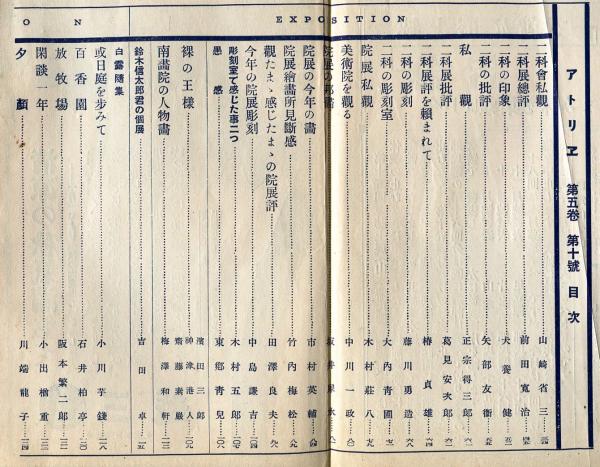 EXPOSITION
NO
アトリヱ 第五卷 第十號 目次
二科會私觀 山崎省三
二科展總評 前田寛治
二科の印象 犬養健
二科の批評 矢部友衞
私觀 正宗得三郎
二科展批評 葛見安次郎
二科展評を賴まれて 椿貞雄
二科の彫刻 藤川勇造
二科の彫刻室 大內青圃
院展私觀 木村莊八
美術院を觀る 中川一政
院展の
院展の今年の畵 市村英輔
院展繪畵所見斷感 竹內梅松
觀たまゝ感じたまゝの院展評 田澤良夫
今年の院展彫刻 中島謙吉
彫刻室で感じた事二つ 木村五郎
愚感 東鄕靑兒
裸の王樣 濱田三郎 神津港人 齋藤素巖
南畵院の人物畵 梅澤和軒
鈴木信太郎君の個展 吉田卓
白露隨集
或日庭を步みて 小川芋錢
百香園 石井柏亭
放牧場 阪本繁二郎
閑談一年 小出楢重
夕顏 川端龍子